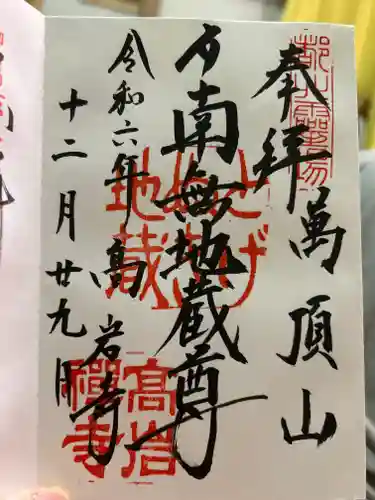 奉拝
萬頂山
南無地蔵尊
高岩寺
令和六年
十二月廿九日
とげ
地蔵
高岩
禅寺